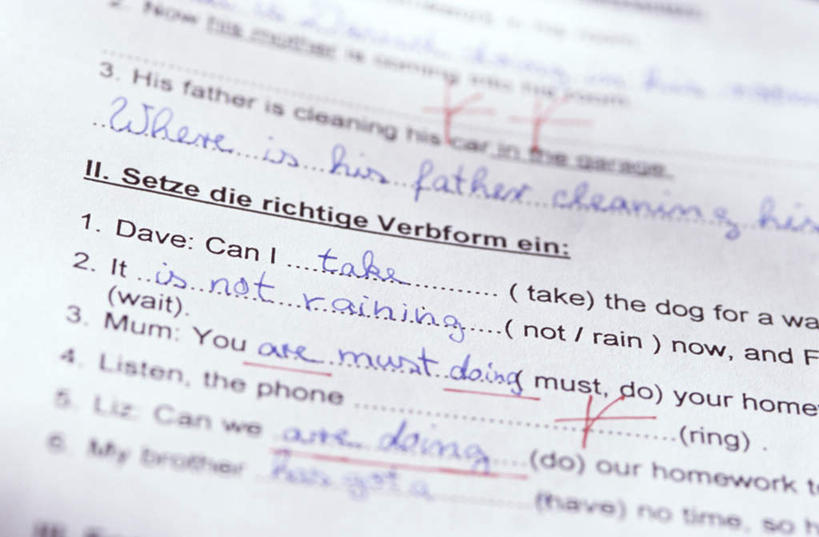 2. Now his mother is coming into his room.
3. His father is cleaning his car in the garage.
Where is his father cleaning his
II. Setze die richtige Verbform ein:
1. Dave: Can I take ( take) the dog for a wa
2. It is not raining ( not / rain ) now, and F
(wait).
3. Mum: You are must doing must, do) your home
4. Listen, the phone (ring) .
5. Liz: Can we are doing (do) our homework to
6. My brother has got a (have) no time, so h